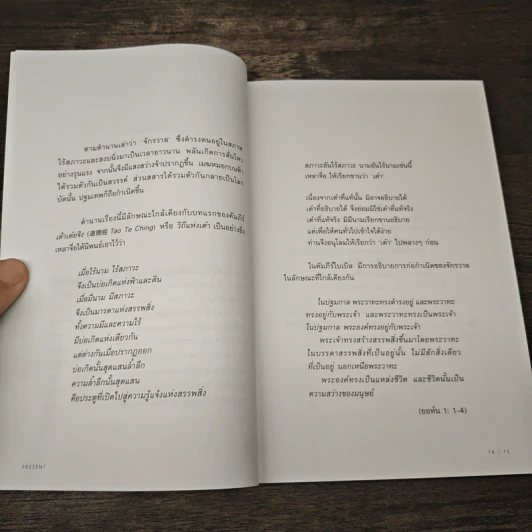 ตามตำนานเล่าว่า ‘จักรวาล’ ซึ่งดำรงตนอยู่ในสภาพ
ไร้สภาวะและสงบนิ่งมาเป็นเวลายาวนาน พลันเกิดการสั่นไหว
อย่างรุนแรง จากนั้นจึงมีแสงสว่างจ้าปรากฏขึ้น เมฆหมอกบนฟ้า
ได้รวมตัวกันเป็นสวรรค์ ส่วนสสารได้รวมตัวกันกลายเป็นโลก
บัดนั้น ปฐมเทพก็ถือกำเนิดขึ้น
ตำนานเรื่องนี้มีลักษณะใกล้เคียงกับบทแรกของคัมภีร์
เต้าเต๋อจิง (道德經 Tao Te Ching) หรือ วิถีแห่งเต๋า เป็นอย่างยิ่ง
เหลาจื่อได้นิพนธ์เอาไว้ว่า
เมื่อไร้นาม ไร้สภาวะ
จึงเป็นบ่อเกิดแห่งฟ้าและดิน
เมื่อมีนาม มีสภาวะ
จึงเป็นมารดาแห่งสรรพสิ่ง
ทั้งความมีและความไร้
มีบ่อเกิดแห่งเดียวกัน
แต่ต่างกันเมื่อปรากฏออก
บ่อเกิดนั้นสุดแสนล้ำลึก
ความล้ำลึกนั้นสุดแสน
คือประตูที่เปิดไปสู่ความรู้แจ้งแห่งสรรพสิ่ง
PRESENT
สภาวะอันไร้สภาวะ นามอันไร้นามเช่นนี้
เหลาจื่อ ให้เรียกขานว่า ‘เต๋า’
เนื่องจากเต๋าที่แท้นั้น มิอาจอธิบายได้
เต๋าที่อธิบายได้ จึงย่อมมิใช่เต๋าที่แท้จริง
เต๋าที่แท้จริง มิมีนามเรียกขานอธิบาย
แต่เพื่อให้คนทั่วไปเข้าใจได้ง่าย
ท่านจึงอนุโลมให้เรียกว่า ‘เต๋า’ ไปพลางๆ ก่อน
ในคัมภีร์ไบเบิล มีการอธิบายการก่อกำเนิดของจักรวาล
ในลักษณะที่ใกล้เคียงกัน
ในปฐมกาล พระวาทะทรงดำรงอยู่ และพระวาทะ
ทรงอยู่กับพระเจ้า และพระวาทะทรงเป็นพระเจ้า
ในปฐมกาล พระองค์ทรงอยู่กับพระเจ้า
พระเจ้าทรงสร้างสรรพสิ่งขึ้นมาโดยพระวาทะ
ในบรรดาสรรพสิ่งที่เป็นอยู่นั้น ไม่มีสักสิ่งเดียว
ที่เป็นอยู่ นอกเหนือพระวาทะ
พระองค์ทรงเป็นแหล่งชีวิต และชีวิตนั้นเป็น
ความสว่างของมนุษย์
(ยอห์น 1: 1-4)
14 | 15